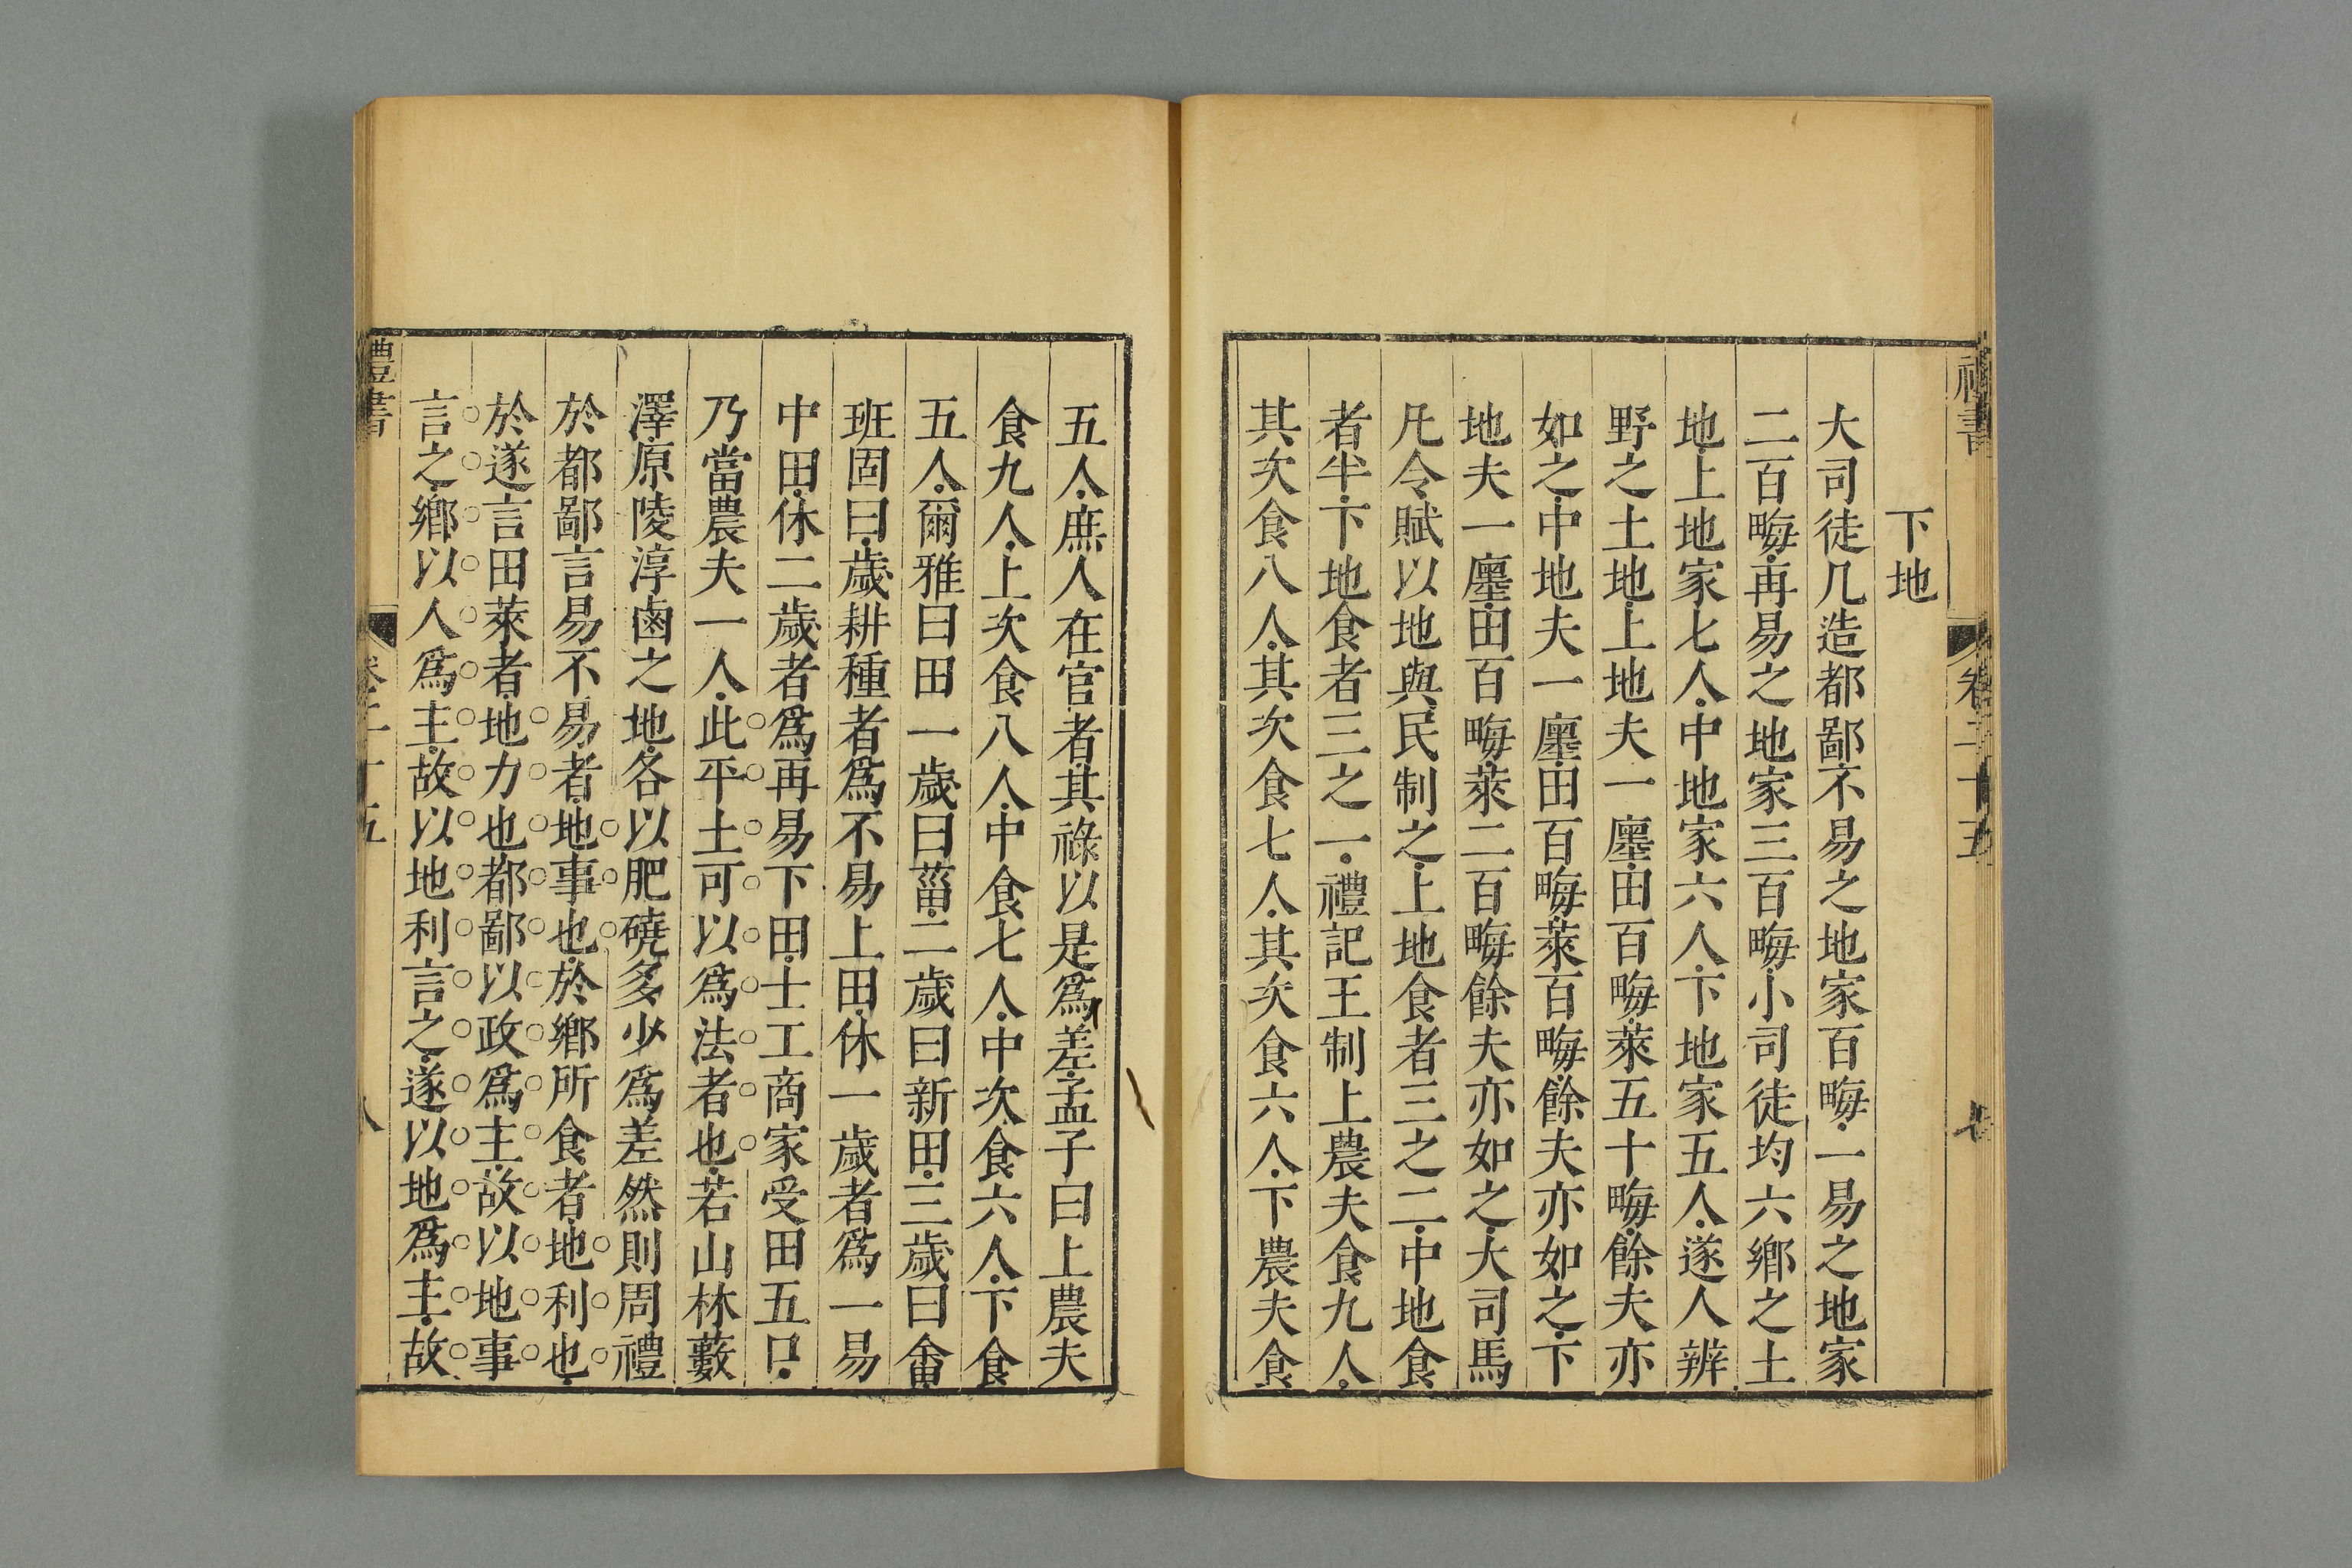 禮書
卷二十五
七
下地
大司徒几造都鄙不易之地家百畮一易之地家
二百畮再易之地家三百畮小司徒均六鄉之土
地上地家七人中地家六人下地家五人遂人辨
野之土地上地夫一廛田百畮萊五十畮餘夫亦
如之中地夫一廛田百畮萊百畮餘夫亦如之下
地夫一廛田百畮萊二百畮餘夫亦如之大司馬
凡令賦以地與民制之上地食者三之二中地食
者半下地食者三之一禮記王制上農夫食九人
其次食八人其次食七人其次食六人下農夫食
五人庶人在官者其祿以是爲差孟子曰上農夫
食九人上次食八人中食七人中次食六人下食
五人爾雅曰田一歲曰菑二歲曰新田三歲曰畬
班固曰歲耕種者爲不易上田休一歲者爲一易
中田休二歲者爲再易下田士工商家受田五口
乃當農夫一人此平土可以爲法者也若山林藪
澤原陵淳鹵之地各以肥磽多少爲差然則周禮
於都鄙言易不易者地事也於鄉所食者地利也
於遂言田萊者地力也都鄙以政爲主故以地事
言之鄉以人爲主故以地利言之遂以地爲主故
禮書
卷二十五
八